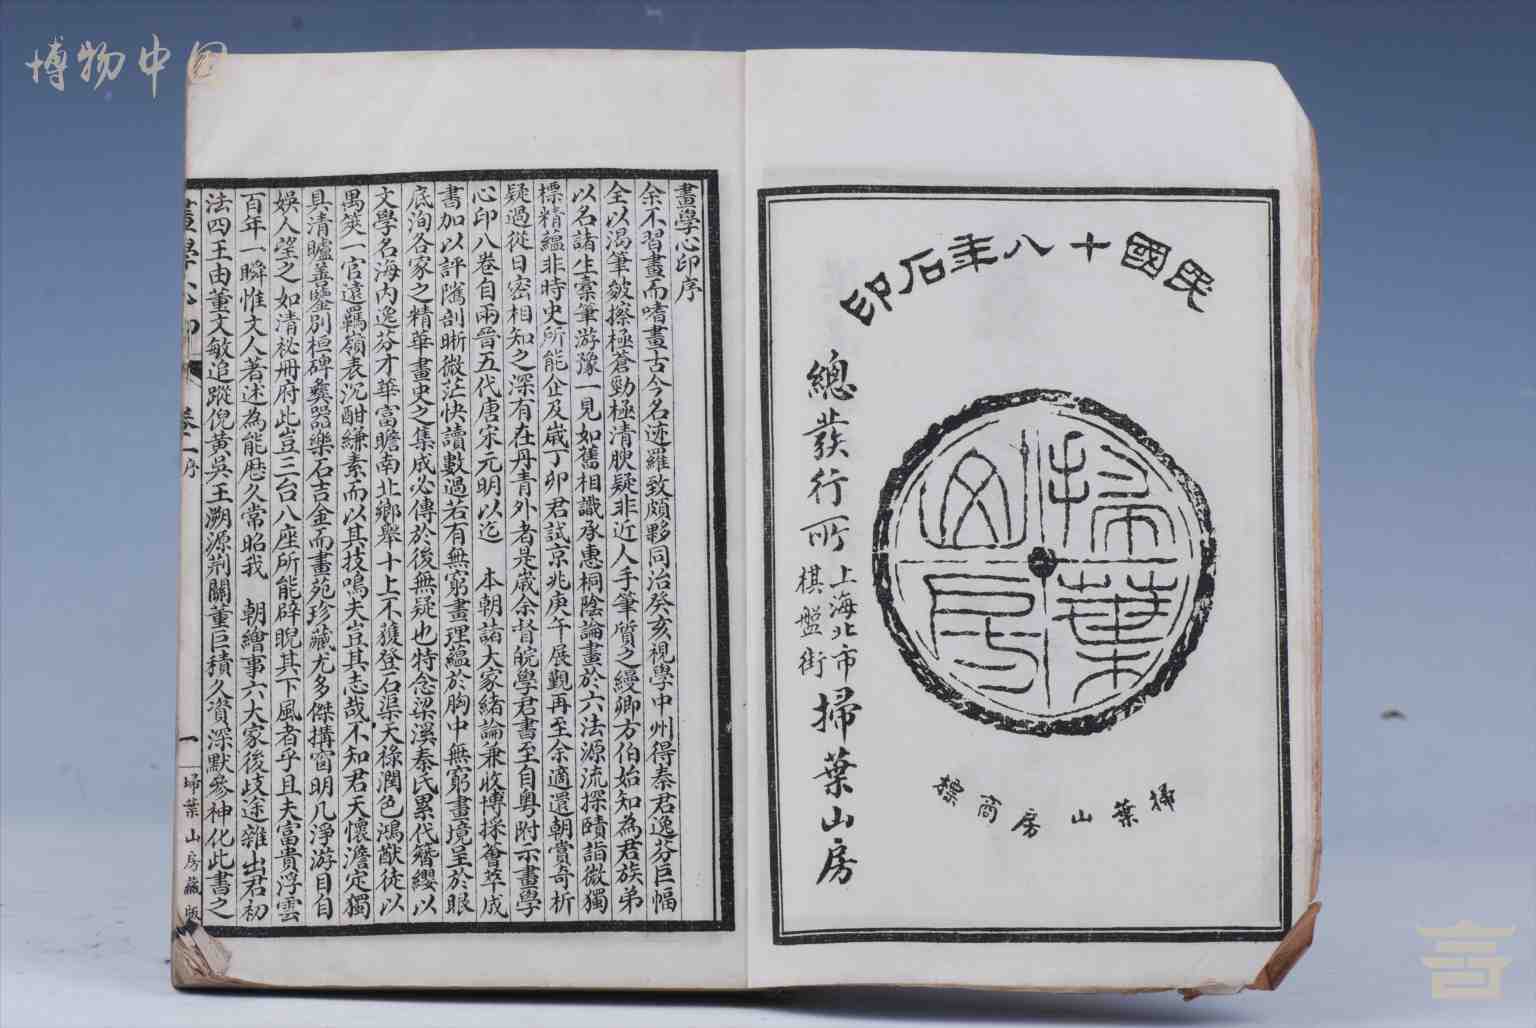 博物中国
民國十八年石印
總發行所 上海北市棋盤街 掃葉山房
掃葉山房
掃葉山房商標
畫學心印序
余不習畫而嗜畫古今名迹羅致頗夥同治癸亥視學中州得秦君逸芬巨幅
全以渴筆皴擦極蒼勁極清腴疑非近人手筆質之縵卿方伯始知為君族弟
以名諸生橐筆游豫一見如舊相識承惠桐陰論畫於六法源流探賾詣微獨
標精蘊非時史所能企及歲丁卯君試京兆庚午展覲再至余適還朝賞奇析
疑過從日密相知之深有在丹青外者是歲余督皖學君書至自粵附示畫學
心印八卷自兩晉五代唐宋元明以迄 本朝諸大家緒論兼收博採薈萃成
書加以評隲剖晰微茫快讀數過若有無窮畫理蘊於胸中無窮畫境呈於眼
底洵各家之精華畫史之集成必傳於後無疑也特念梁溪秦氏累代簪纓以
文學名海內逸芬才華富贍南北鄉舉十上不獲登石渠天祿潤色鴻猷徒以
禺筴一官遠羈嶺表沉酣縑素而以其技鳴夫豈其志哉不知君天懷澹定獨
具清矑善鑒別桓碑彝器樂石吉金而畫苑珍藏尤多傑搆窗明几淨游目自
娛人望之如清祕冊府此豈三台八座所能辟睨其下風者乎且夫富貴浮雲
百年一瞬惟文人著述為能歷久常昭我 朝繪事六大家後歧途雜出君初
法四王由董文敏追蹤倪黃吳王溯源荊關董巨積久資深默參神化此書之
畫學心印 卷二 序 一 掃葉山房藏版
言